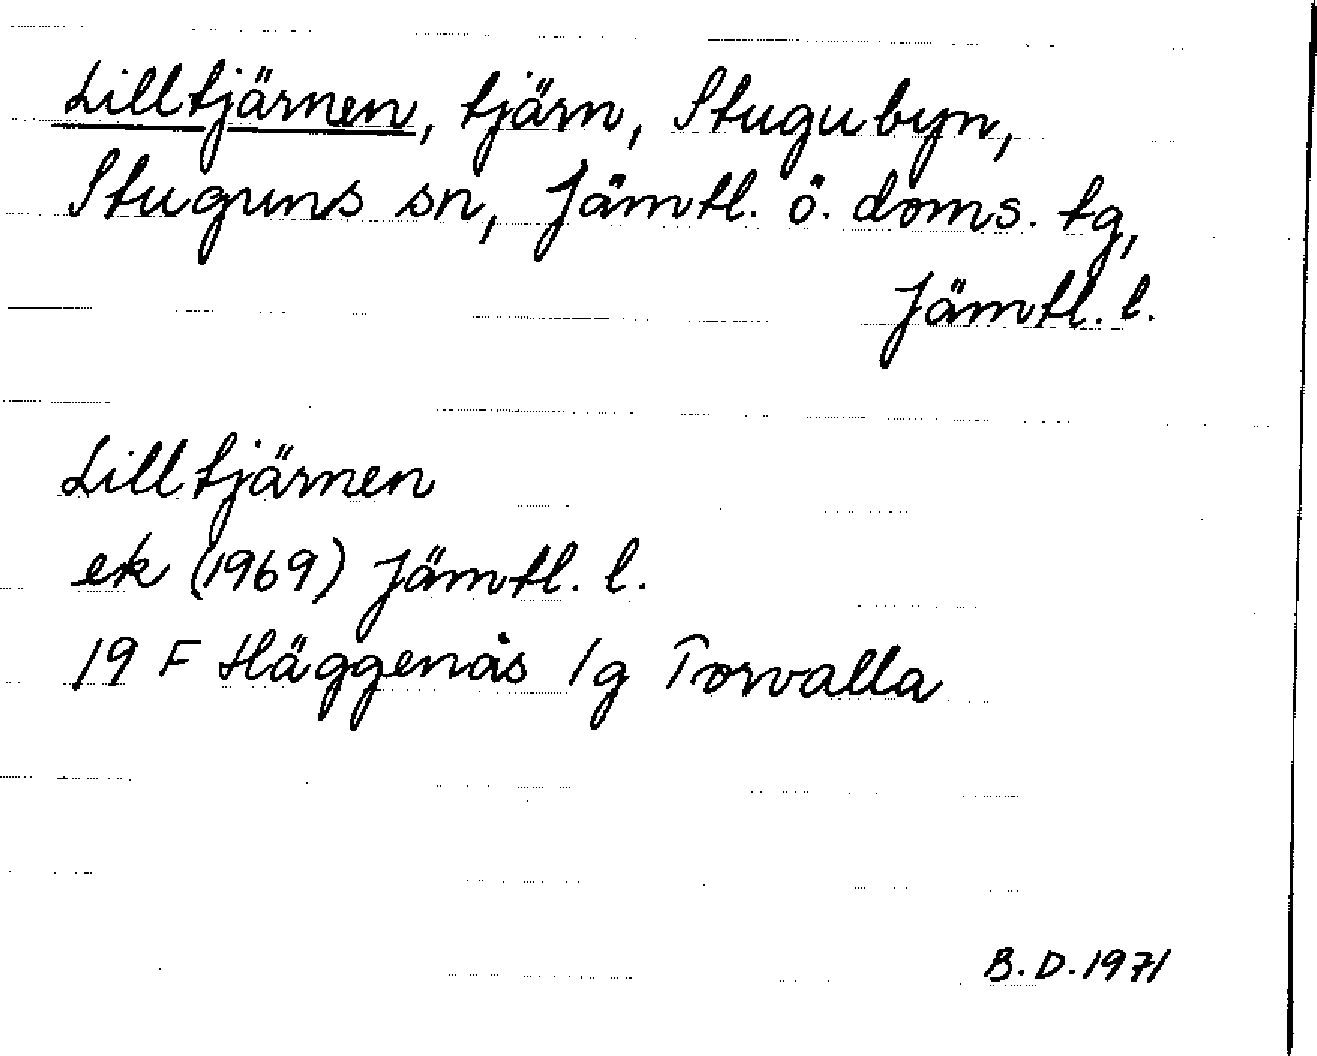 Lilltjärnen, tjärn, Stugubyn,
Stuguns sn, Jämtl. ö. doms. tg,
Jämtl. l.
Lilltjärnen
ek (1969) Jämtl. l.
19 F Häggenås 1g Torvalla
B.D.1971